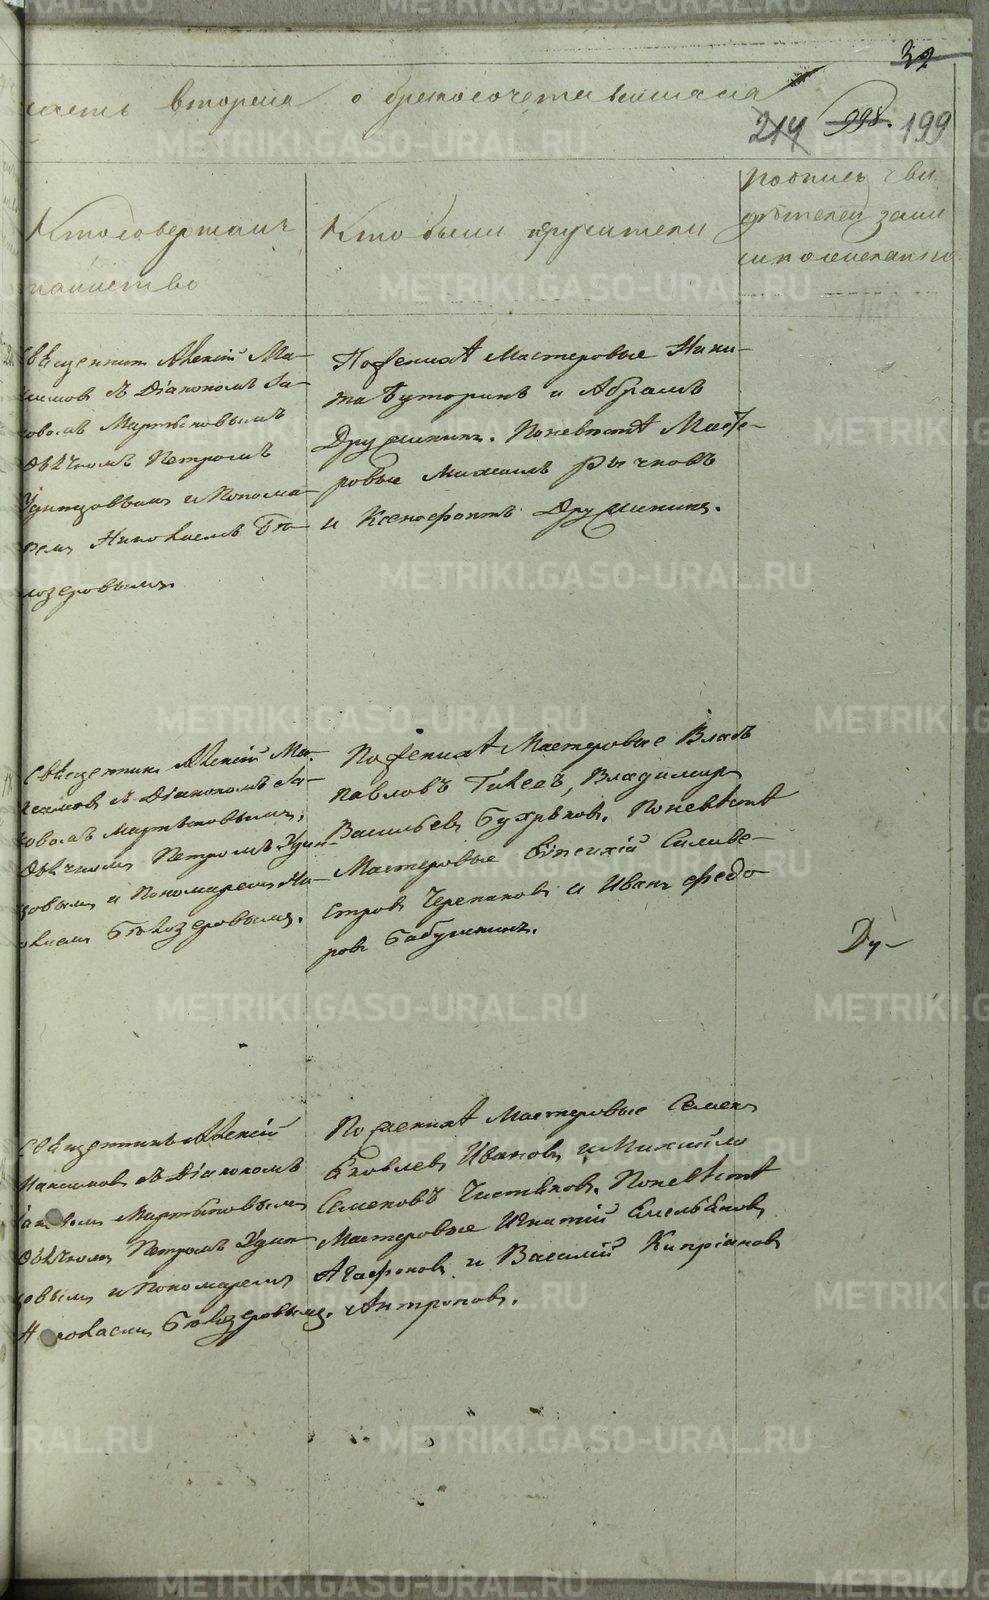 32
часть вторая о бракосочетавшихся
214 998. 199
Кто совершалъ
таинство
Кто были поручители
подпись сви
дѣтелей запи
си по желанию
Священник Алексій Ма-
симов съ Діакономъ Іа-
ковомъ Мартьяновымъ
Дьячкомъ Петромъ
Удинцовымъ и Понома-
ремъ Николаемъ Бѣ-
лозеровымъ.
По женихѣ Мастеровые Ники-
та Буторинъ и Абрамъ
Дружининъ. По невѣстѣ Масте-
ровые Михаилъ Рычковъ
и Ксенофонтъ Дружининъ.
Священникъ Алексій Ма-
ксимовъ съ Діакономъ Іа-
ковомъ Мартьяновымъ,
Дьячкомъ Петромъ Удин-
цовымъ и Пономаремъ Ни-
колаемъ Бѣлозеровымъ.
По женихѣ Мастеровые Власъ
Павловъ Владимиръ
Васильевъ По невѣстѣ
Мастеровые Евгений Силиве-
стровъ Черепановъ и Иванъ Федо
ровъ Бабушкинъ.
Ду-
Священникъ Алексій
Максимовъ съ Діакономъ
Іаковомъ Мартьяновымъ
Дьячкомъ Петромъ Удин-
цовымъ и Пономаремъ
Николаемъ Бѣлозеровымъ.
По женихѣ Мастеровые Семенъ
Яковлевъ Ивановъ и Михайло
Семеновъ Чистяковъ. По невѣстѣ
Мастеровые Игнатій Емельяновъ
Агафоновъ и Василій Кипріановъ
Антроповъ.
METRIKI.GASO-URAL.RU